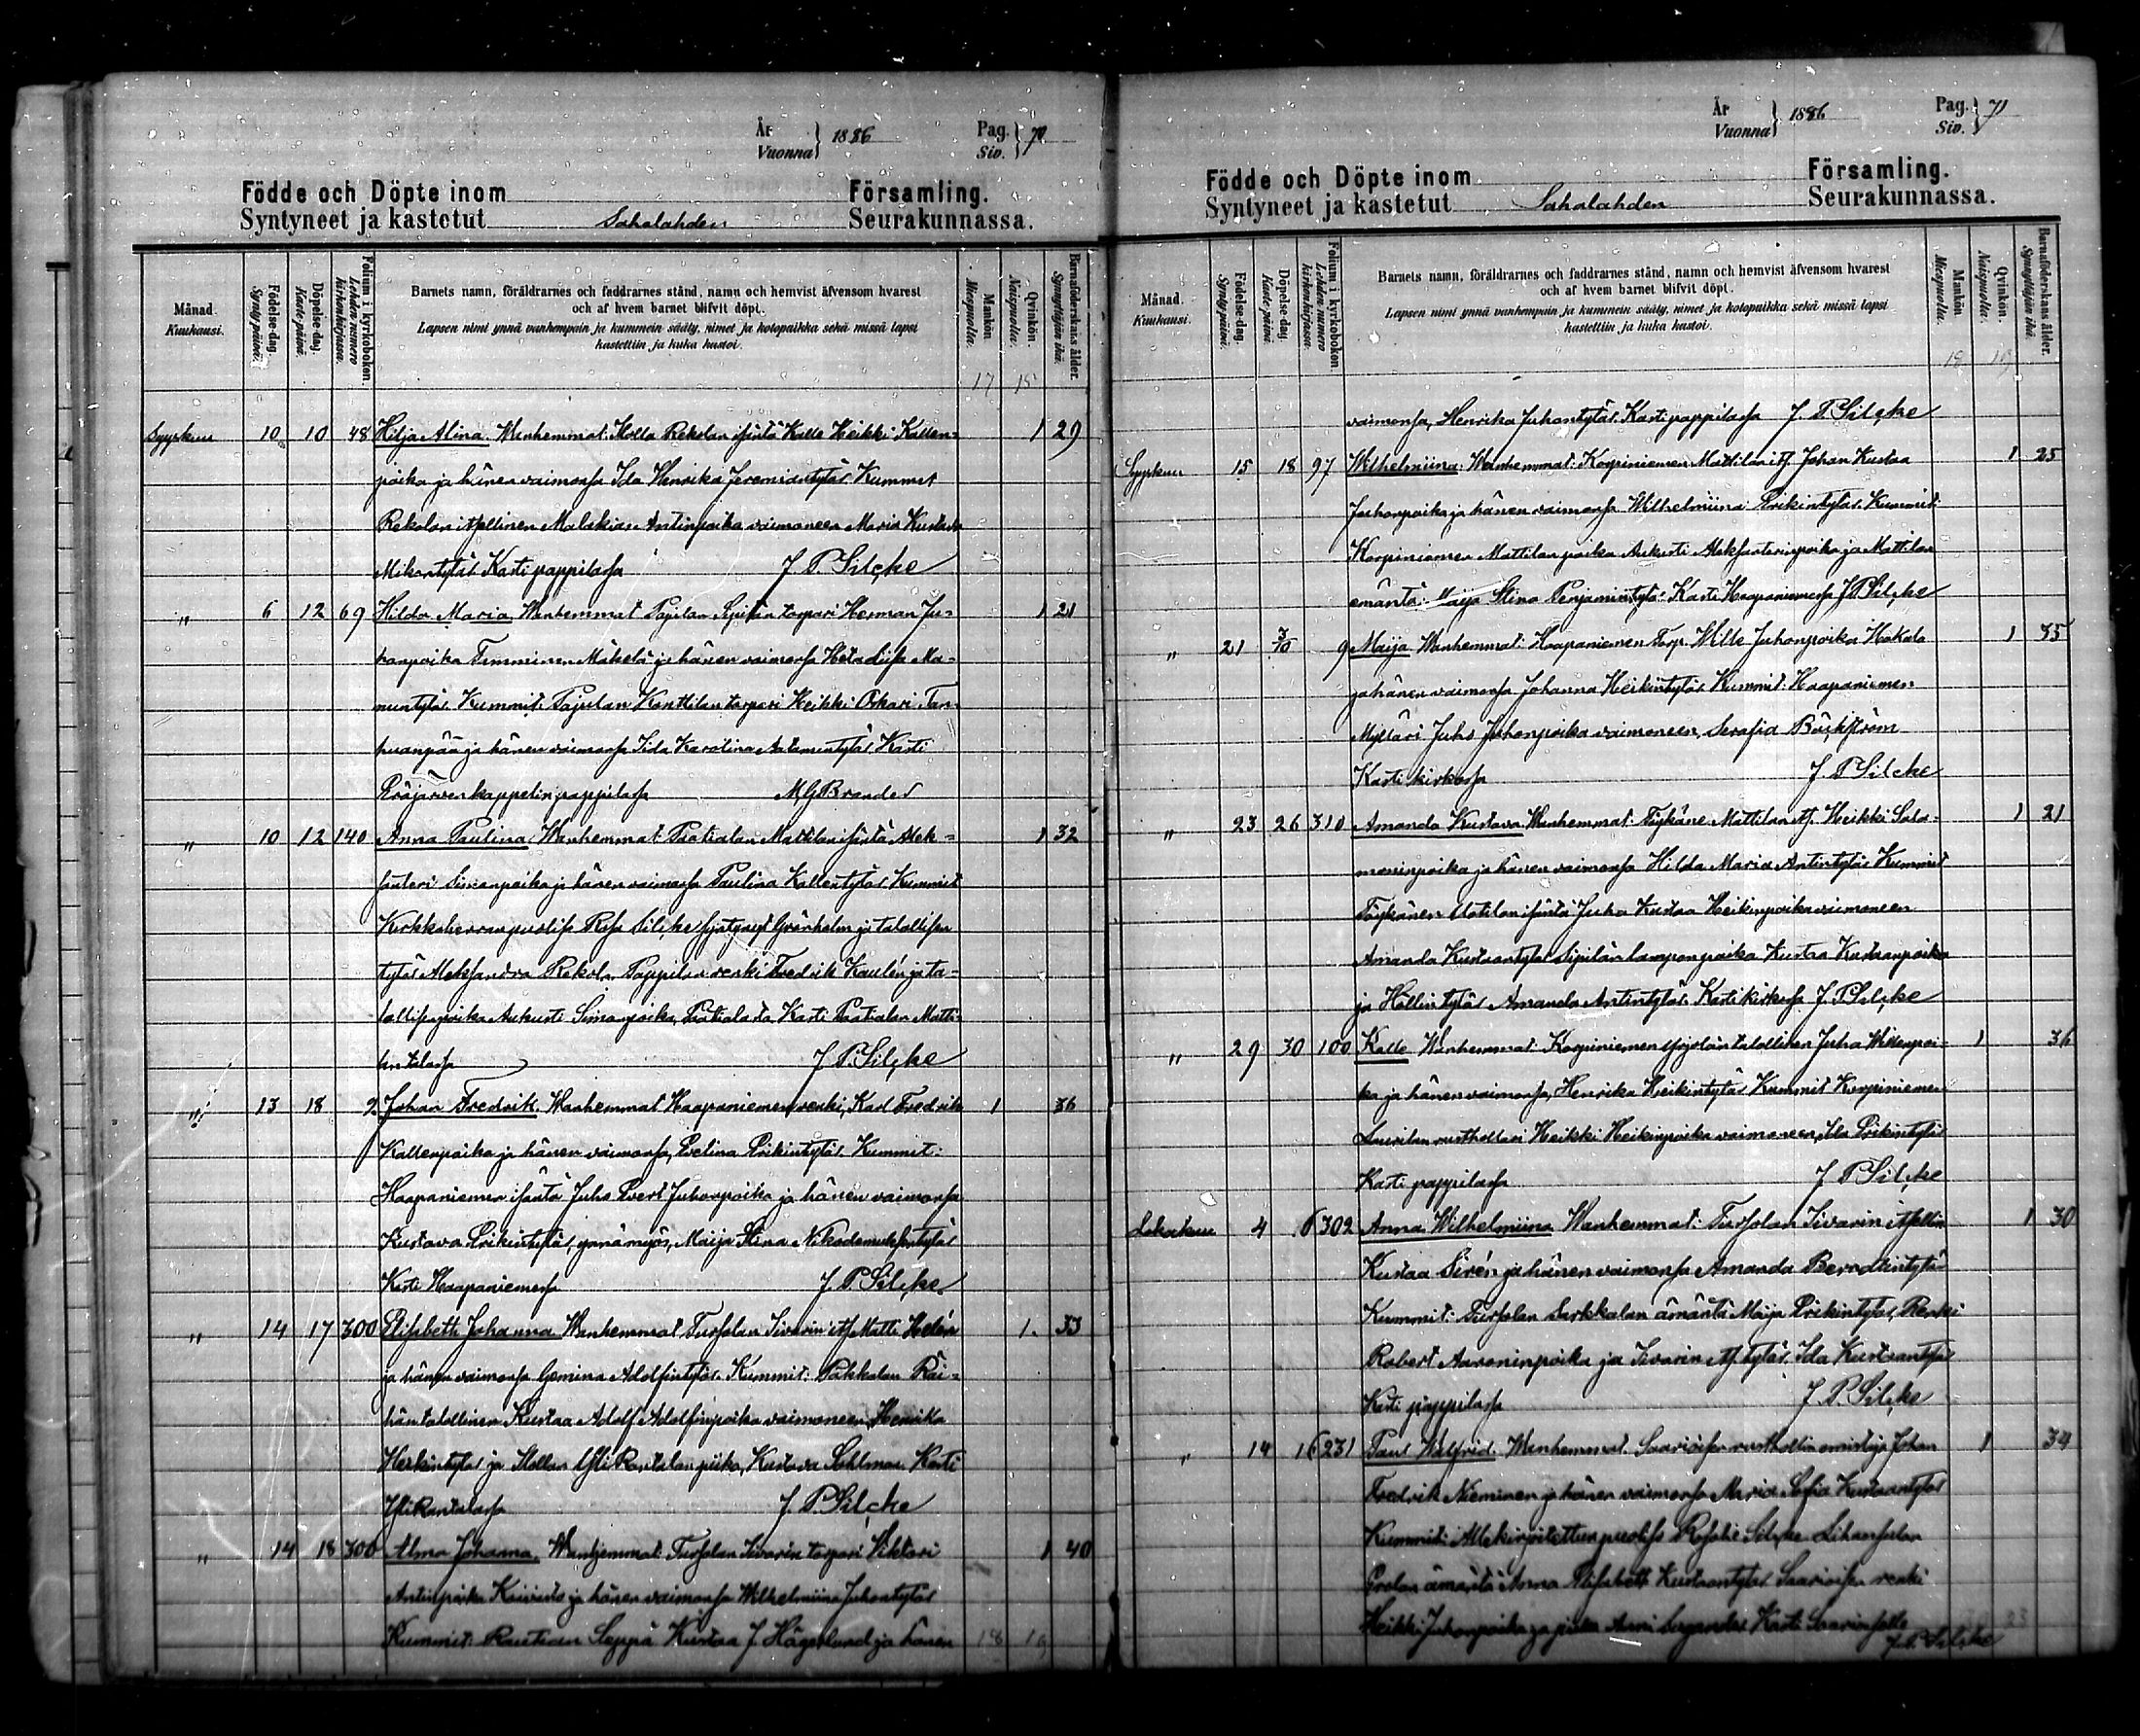 År
Vuonna } 1886
Pag.
Siv. } 70
Födde och Döpte inom Församling.
Syntyneet ja kastetut Sahalahden Seurakunnassa.
Månad. Kuukausi.
Födelse-dag. Synty-päivä.
Döpelse-dag. Kaste-päivä.
Folium i kyrkoboken. Lehden numero kirkonkirjassa.
Barnets namn, föräldrarnes och faddrarnes stånd, namn och hemvist äfvensom hvarest
och af hvem barnet blifvit döpt.
Lapsen nimi ynnä vanhempain ja kummein sääty, nimet ja kotopaikka sekä missä lapsi
kastettiin ja kuka kastoi.
Mankön. Miespuolia.
Qvinkön. Naispuolia.
Barnaföderskans ålder. Synnyttäjän ikä.
17 15
Syyskuu 10 10 48 Hilja Alina. Wanhemmat: Moltta Rekolan isäntä Kalle Heikki Kallen- 1 29
poika ja hänen vaimonsa Ida Henrika Jeremiantytär Kummit
Rekolan itsellinen Malakias Antinpoika vaimoneen Maria Kustava
Mikontytär Kasti pappilassa J. P. Silçke
" 6 12 69 Hilda Maria Wanhemmat Pajulan torpari Herman Ju- 1 21
hanpoika Tamminen Mäkelä ja hänen vaimonsa Ma-
nuntytär Kummit: Pajulan Konttilan torpari Heikki Oskari Tan-
huanpää ja hänen vaimonsa Iida Karolina Aatamintytär Kasti
kappelin pappilassa M G Brander
" 10 12 140 Anna Paulina: Wanhemmat: Paatialan Mattilan isäntä Alek- 1 32
santeri Simonpoika ja hänen vaimonsa Paulina Kallentytär Kummit
Kirkkoherran puolisa Rosa Silçke syntynyt Grönholm ja talollisen
tytär Aleksandra Rekola Pappilan renki Fredrik Kaulén ja ta-
lollisenpoika Aukusti Simonpoika, Paatialasta Kasti Paatialan Matti-
lan talossa J. P. Silçke
" 13 18 92 Johan Fredrik. Wanhemmat Haapaniemen renki, Karl Fredrik 1 36
Kallenpoika ja hänen vaimonsa, Evelina Erikintytär. Kummit:
Haapaniemen isäntä Juho Evert Juhonpoika ja hänen vaimonsa
Kustava Erikintytär, ynnä myös, Maija Stina Nikodemuksentytär
Kasti Haapaniemessä J. P. Silçke.
" 14 17 300 Elisabeth Johanna Wanhemmat Tursolan Iivarin its. Matti Helén 1. 33
ja hänen vaimonsa Gemina Adolfintytär. Kummit: Pakkalan Räi-
hän talollinen Kustaa Adolf Adolfinpoika vaimoneen, Henrika
Heikintytär ja Moltan Yli Rantalan piika, Kustava Sahlman. Kasti
Yli Rantalassa J. P. Silçke
" 14 18 300 Alma Johanna. Wanhemmat: Tursolan Iivarin torpari Viktori 1 40
Antinpoika Koivisto ja hänen vaimonsa Wilhelmiina Juhontytär
Kummit: Rautian Seppä Kustaa J. Hägerlund ja hänen 18 19
År
Vuonna } 1886
Pag.
Siv. } 71
Födde och Döpte inom Församling.
Syntyneet ja kastetut Sahalahden Seurakunnassa.
Månad. Kuukausi.
Födelse-dag. Synty-päivä.
Döpelse-dag. Kaste-päivä.
Folium i kyrkoboken. Lehden numero kirkonkirjassa.
Barnets namn, föräldrarnes och faddrarnes stånd, namn och hemvist äfvensom hvarest
och af hvem barnet blifvit döpt.
Lapsen nimi ynnä vanhempain ja kummein sääty, nimet ja kotopaikka sekä missä lapsi
kastettiin ja kuka kastoi.
Mankön. Miespuolia.
Qvinkön. Naispuolia.
Barnaföderskans ålder. Synnyttäjän ikä.
18 19
vaimonsa, Henrika Juhontytär. Kasti pappilassa J. P. Silçke
Syyskuu 15 18 97 Wilhelmiina: Wanhemmat: Korpiniemen Mattilan its. Johan Kustaa 1 25
Juhonpoika ja hänen vaimonsa Wilhelmiina Erikintytär. Kummit:
Korpiniemen Mattilan poika Aukusti Aleksanterinpoika ja Mattilan
emäntä Maija Stina Penjamintytär Kasti Haapaniemessä J. P. Silçke
" 21 3/10 9 Maija Wanhemmat: Haapaniemen Torp. Wille Juhonpoika Hakala 1 35
ja hänen vaimonsa Johanna Heikintytär Kummit: Haapaniemen
Mylläri Juho Juhonpoika vaimoneen, Serafia Bäckström
Kasti kirkossa J. P. Silcke
" 23 26 310 Amanda Kustava Wanhemmat: Töykäne Mattilan its. Heikki Salo- 1 21
moninpoika ja hänen vaimonsa Hilda Maria Antintytär Kummit
Töykänen isäntä Juha Kustaa Heikinpoika vaimoneen
Amanda Kustaantytär Sipilän lampuonpoika Kustaa Kustaanpoika
ja Amanda Antintytär. Kasti kirkossa J. P. Silçke
" 29 30 100 Kalle Wanhemmat. Korpiniemen Yrjölän talollinen Juha Willenpoi- 1 36
ka ja hänen vaimonsa, Henrika Heikintytär Kummit Korpiniemen
Laurilan rusthollari Heikki Heikinpoika vaimoneen, Ida Erikintytär
Kasti pappilassa J. P. Silçke
Lokakuu 4 6 302 Anna Wilhelmiina Wanhemmat: Tursolan Iivarin itsellin 1 30
Kustaa Sirén ja hänen vaimonsa Amanda Berndtintytär
Kummit: Tursolan Sarkkalan ämäntä Maija Erikintytär, Renki
Robert Aaroninpoika ja Iivarin its. tytär Ida Kustaantytär
Kasti pappilassa J. P. Silçke
" 14 16 231 Paul Walfrid. Wanhemmat. Saarioisen rusthollin omistaja Johan 1 34
Fredrik Nieminen ja hänen vaimonsa Maria Sofia Kustaantytär
Kummit: Allekirjoitettun puoliso Rosalie Silçke
ämäntä Anna Elisabeth Kustaantytär Saarioisen renki
Heikki Juhonpoika ja piika Kasti Saarioisella
J. P. Silçke